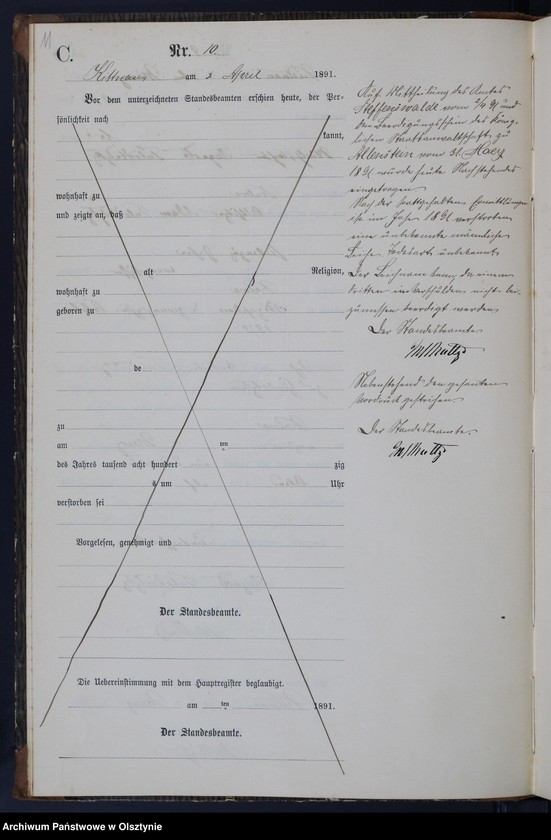 11
C.
Nr. 10.
am 3 April 1891.
Vor dem unterzeichneten Standesbeamten erschien heute, der Per-
sönlichkeit nach
kannt,
wohnhaft zu
und zeigte an, daß
alt Religion,
wohnhaft zu
geboren zu
de
zu
am ten
des Jahres tausend acht hundert zig
um Uhr
verstorben sei
Vorgelesen, genehmigt und
Der Standesbeamte.
Die Uebereinstimmung mit dem Hauptregister beglaubigt.
am ten 1891.
Der Standesbeamte.
Auf Mittheilung des Amtes
Steffenswalde vom 1/4 91 und
des Beerdigungsschein der König-
lichen Staatsanwaltschaft zu
Allenstein vom 31. Maerz
1891 wurde heute Nachstehendes
eingetragen.
Nach der stattgehalten Ermittlungen
ist im Jahre 1891 verstorben
eine unbekannte männliche
Leiche Todesart unbekannt.
Der Leichnam kann da einem
dritten ein Verschulden nicht bei-
zumessen beerdigt werden
Der Standesbeamte
Nebenstehend den gesamten
Vordruck gestrichen.
Der Standesbeamte.
Archiwum Państwowe w Olsztynie